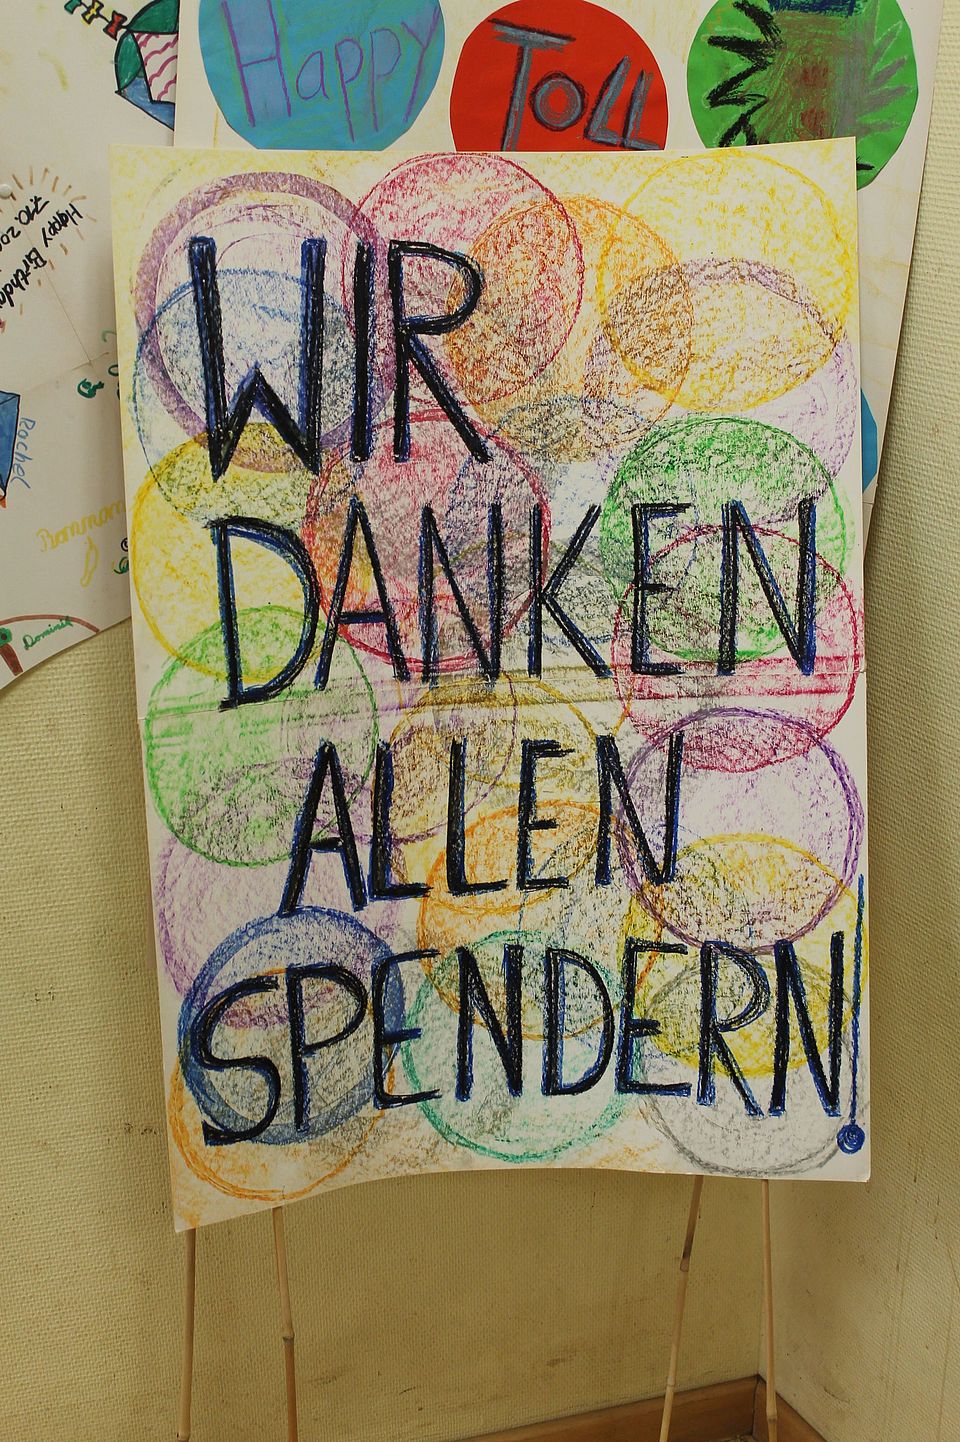 Happy
TOLL
Happy Birthday
Rachel
Dominik
WIR
DANKEN
ALLEN
SPENDERN!